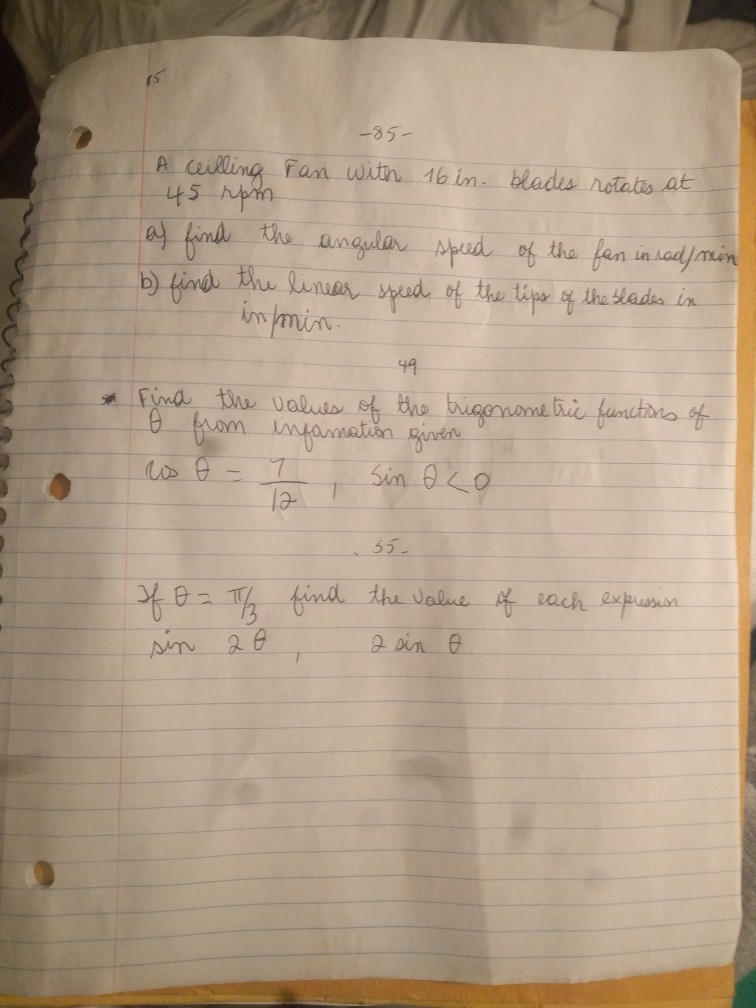 85
-85-
A ceilling Fan with 16 in. blades rotates at
45 rpm
a) find the angular speed of the fan in rad/min
b) find the linear speed of the tips of the blades in
in/min.
49
Find the values of the trigonometric functions of
θ from infamation given
cos θ = 7/12, sin θ < 0
. 55-
If θ = π/3 find the value of each expression
sin 2θ, 2 sin θ